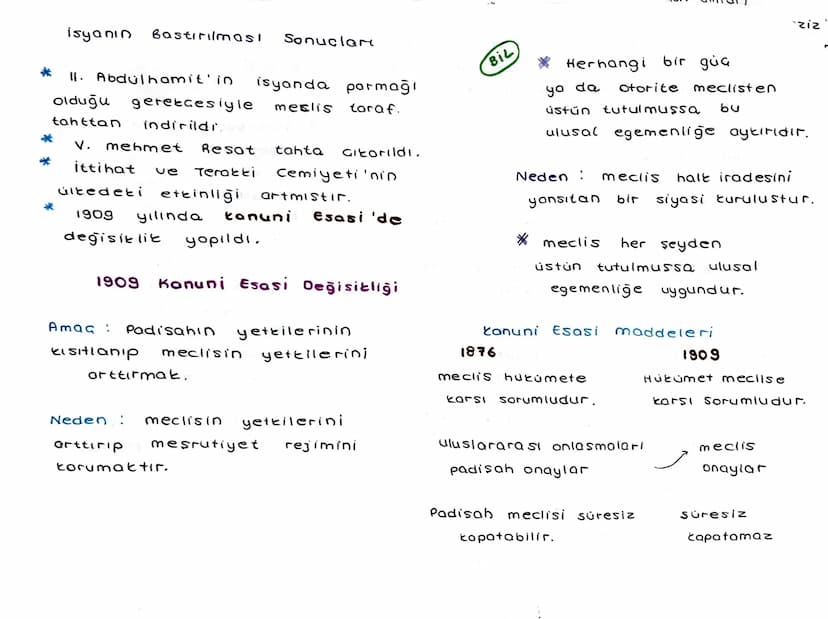 ziz
İsyanın Bastırılması Sonuçları
* II. Abdülhamit'in isyanda parmağı
olduğu gerekcesiyle meclis taraf.
tahttan indirildi.
* V. mehmet Resat tahta cıkarıldı.
* İttihat ve Terakki Cemiyeti'nin
ülkedeki etkinliği artmıstır.
* 1909 yılında kanuni Esasi'de
değisiklik yapıldı.
1909 Kanuni Esasi Değisikliği
Amaç : Padisahın yetkilerinin
kısıtlanıp meclisin yetkilerini
arttırmak.
Neden : meclisin yetkilerini
arttırıp mesrutiyet rejimini
korumaktır.
BİL
* Herhangi bir güç
ya da otorite meclisten
üstün tutulmussa bu
ulusal egemenliğe aykırıdır.
Neden : meclis halk iradesini
yansıtan bir siyasi kurulustur.
* meclis her şeyden
üstün tutulmussa ulusal
egemenliğe uygundur.
kanuni Esasi maddeleri
1876 1909
meclis hükümete Hükümet meclise
karsı sorumludur. karsı sorumludur.
uluslararası anlasmaları meclis
padisah onaylar onaylar
Padisah meclisi süresiz süresiz
kapatabilir. kapatamaz